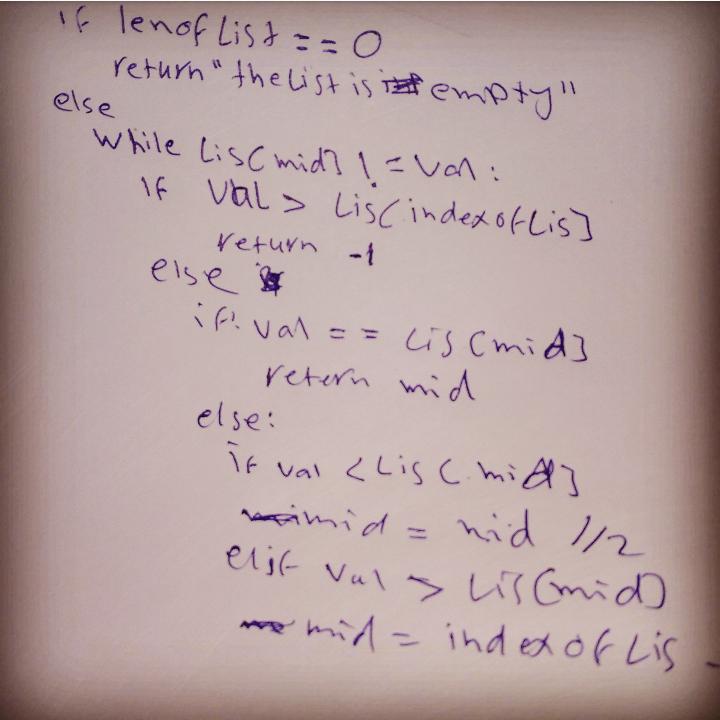 if lenofList == 0
return "the List is empty"
else
while Lis[mid] != val:
if val > Lis[indexofLis]
return -1
else
if: val == Lis[mid]
return mid
else:
if val < Lis[mid]
mid = mid //2
elif val > Lis[mid]
mid = indexofLis -